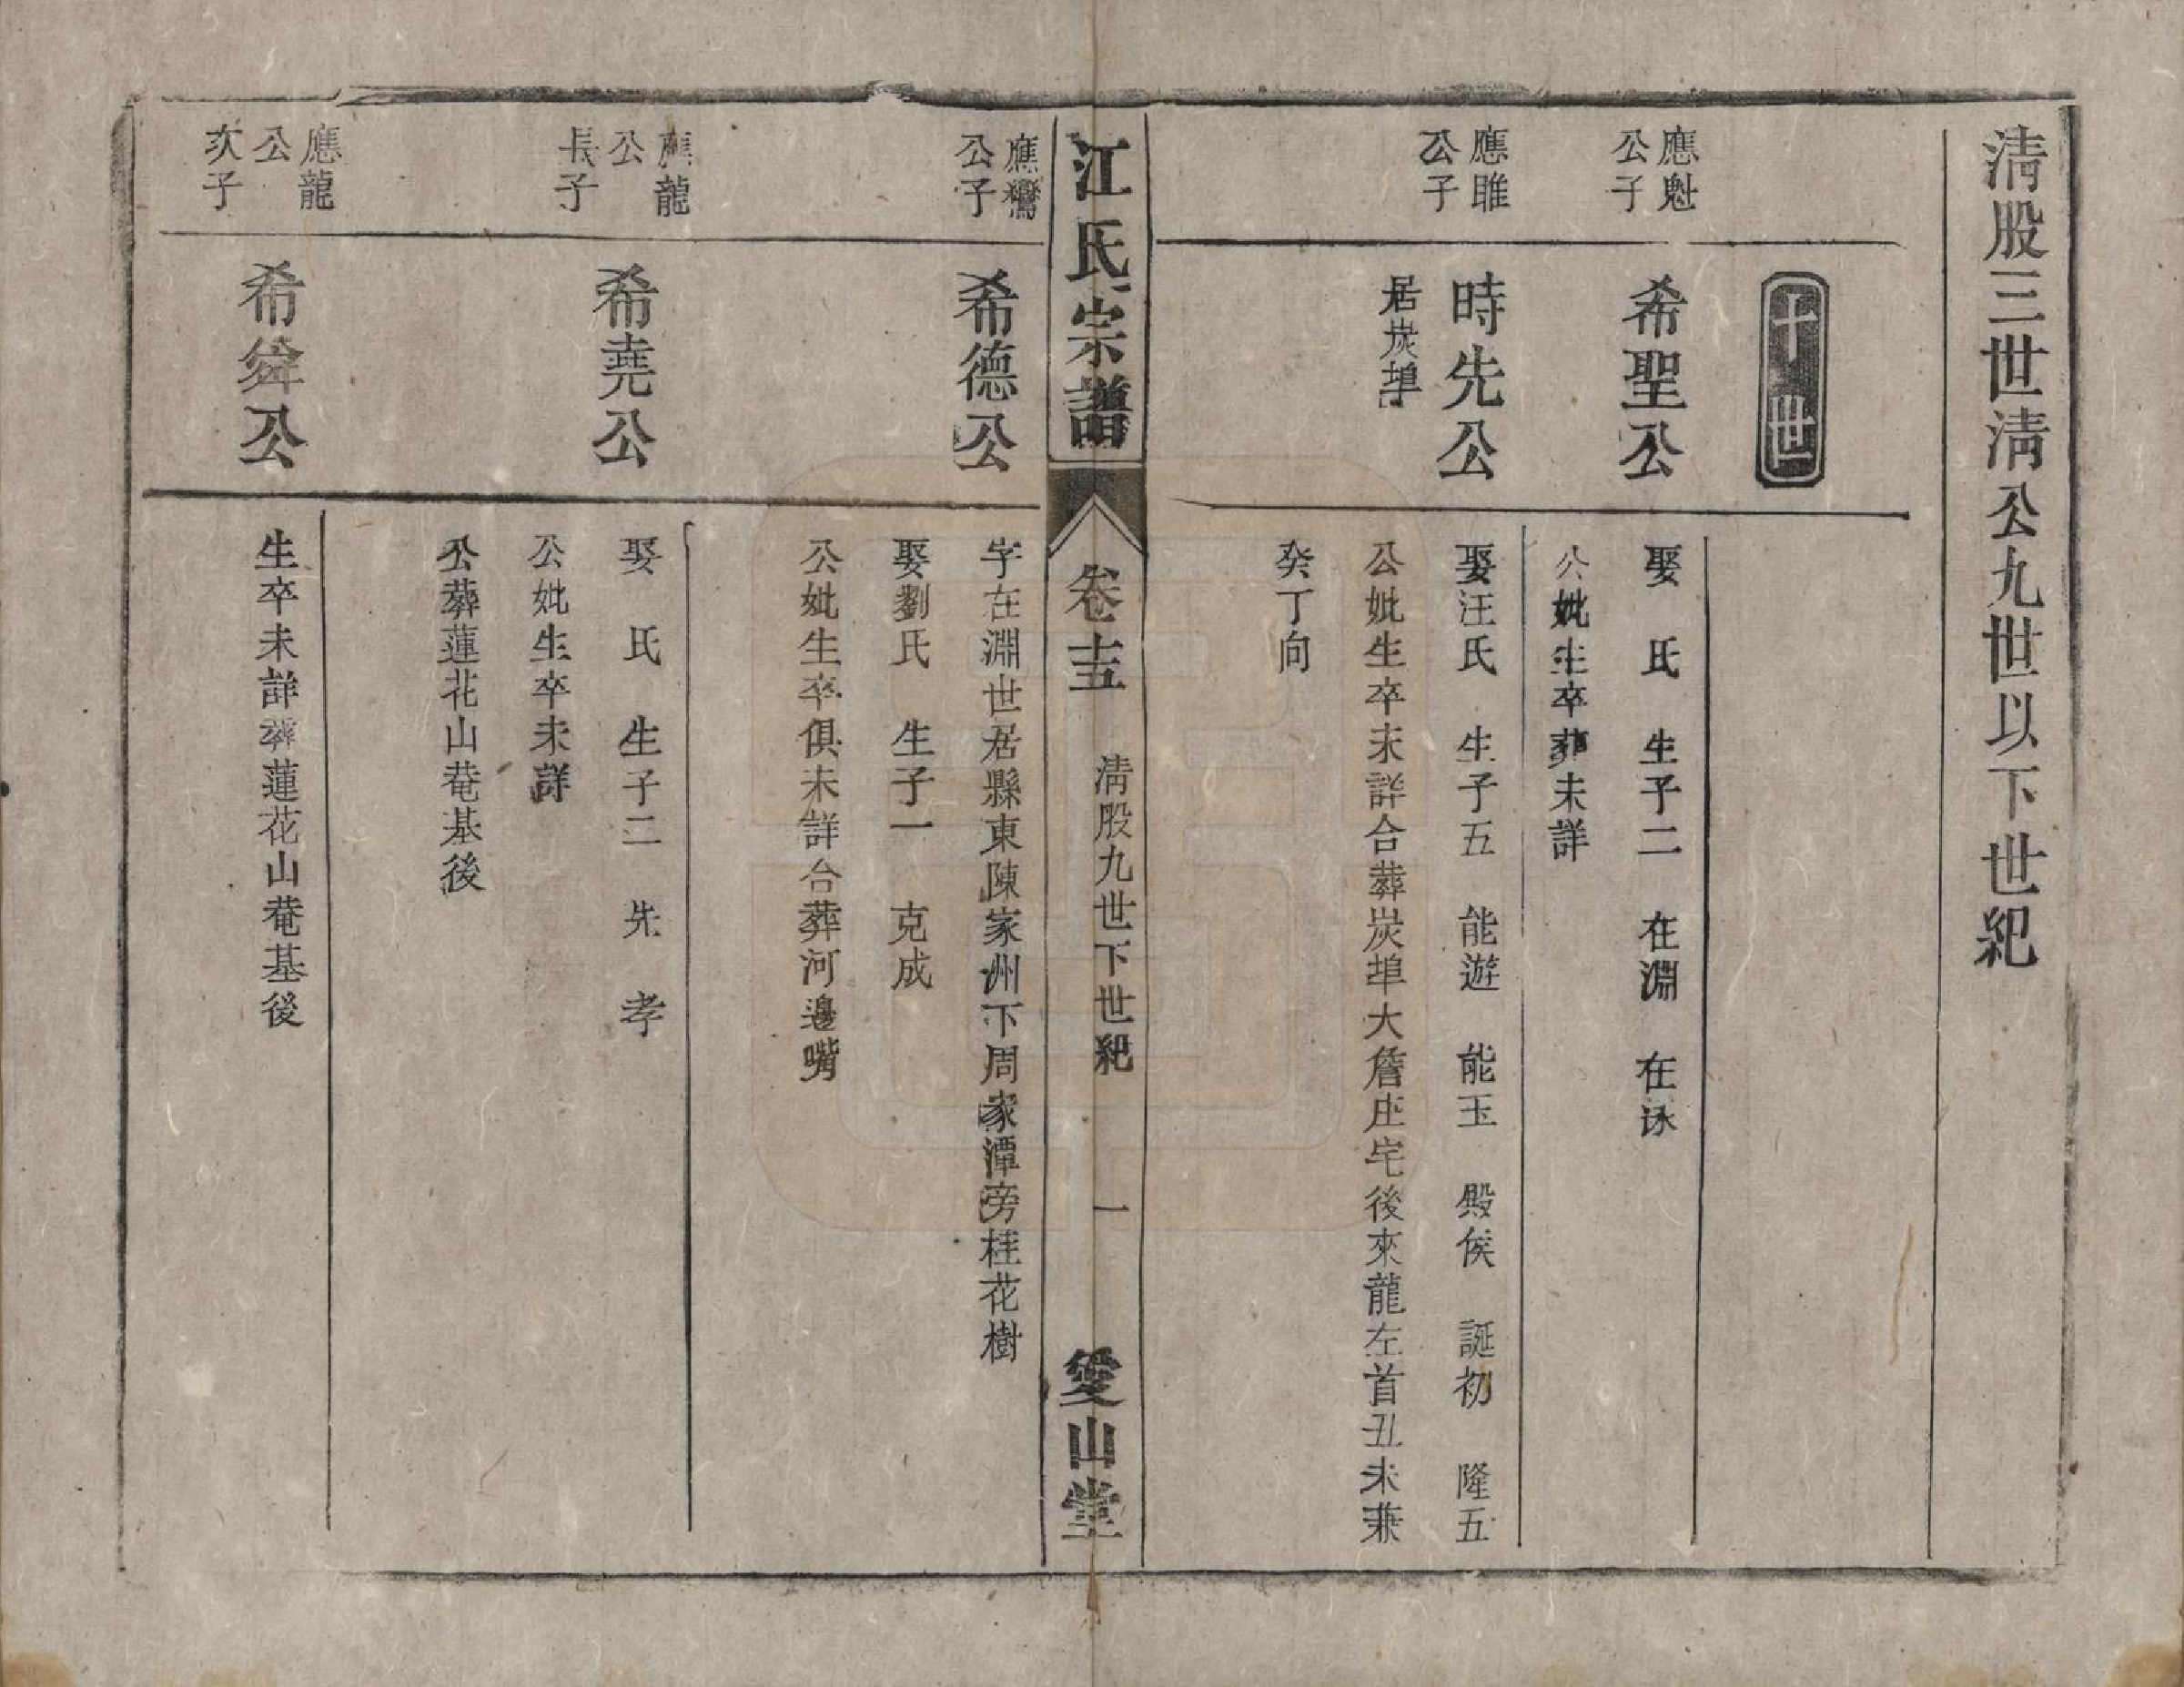 清股三世清公九世以下世紀
十世
應魁
公子
希聖公
娶　氏　生子二　在淵　在泳
公妣生卒葬未詳
應睢
公子
時先公
居炭埠
娶汪氏　生子五　能遊　能玉　殿侯　誕初　隆五
公妣生卒未詳合葬炭埠大詹庄宅後來龍左首丑未兼
癸丁向
江氏宗譜
卷十五
清股九世下世紀
一
愛山堂
應鸞
公子
希德公
字在淵世居縣東陳家洲下周家潭旁桂花樹
娶劉氏　生子一　克成
公妣生卒俱未詳合葬河邊嘴
應龍
公
長子
希堯公
娶　氏　生子二　先　孝
公妣生卒未詳
公葬蓮花山菴基後
應龍
公
次子
希舜公
生卒未詳葬蓮花山菴基後